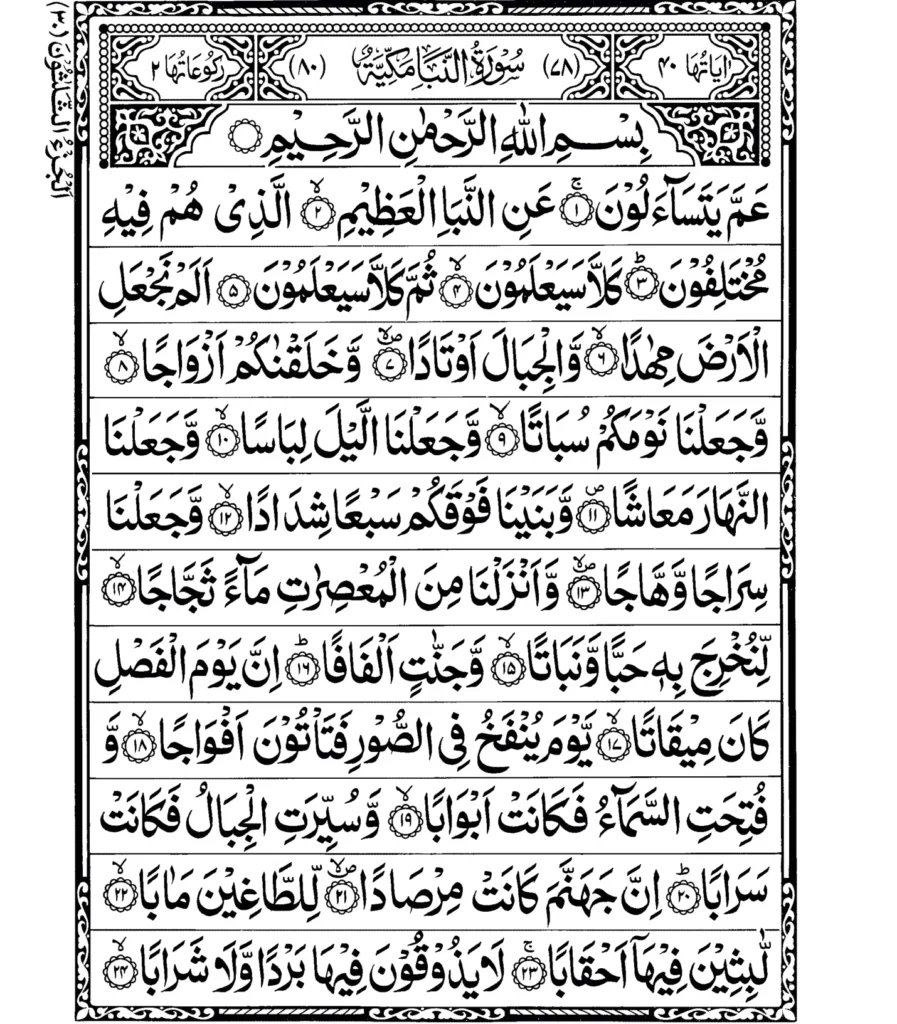 اٰيَاتُهَا ٤٠ (٧٨) سُوْرَةُ النَّبَاِ مَكِّيَّةٌ (٨٠) رُكُوْعَاتُهَا ٢
بِسْمِ اللّٰهِ الرَّحْمٰنِ الرَّحِيْمِ ۝
عَمَّ يَتَسَآءَلُوْنَ ۚ‏﴿۱﴾ عَنِ النَّبَاِ الْعَظِيْمِ ۙ‏﴿۲﴾ الَّذِىْ هُمْ فِيْهِ
مُخْتَلِفُوْنَ ؕ‏﴿۳﴾ كَلَّا سَيَعْلَمُوْنَ ۙ‏﴿۴﴾ ثُمَّ كَلَّا سَيَعْلَمُوْنَ ﴿۵﴾ اَلَمْ نَجْعَلِ
الْاَرْضَ مِهٰدًا ۙ‏﴿۶﴾ وَّالْجِبَالَ اَوْتَادًا ۪ۙ‏﴿۷﴾ وَّخَلَقْنٰكُمْ اَزْوَاجًا ۙ‏﴿۸﴾
وَّجَعَلْنَا نَوْمَكُمْ سُبَاتًا ۙ‏﴿۹﴾ وَّجَعَلْنَا الَّيْلَ لِبَاسًا ۙ‏﴿۱۰﴾ وَّجَعَلْنَا
النَّهَارَ مَعَاشًا ۪‏﴿۱۱﴾ وَّبَنَيْنَا فَوْقَكُمْ سَبْعًا شِدَادًا ۙ‏﴿۱۲﴾ وَّجَعَلْنَا
سِرَاجًا وَّهَّاجًا ۪ۙ‏﴿۱۳﴾ وَّاَنْزَلْنَا مِنَ الْمُعْصِرٰتِ مَآءً ثَجَّاجًا ۙ‏﴿۱۴﴾
لِّنُخْرِجَ بِهٖ حَبًّا وَّنَبَاتًا ۙ‏﴿۱۵﴾ وَّجَنّٰتٍ اَلْفَافًا ؕ‏﴿۱۶﴾ اِنَّ يَوْمَ الْفَصْلِ
كَانَ مِيْقَاتًا ۙ‏﴿۱۷﴾ يَّوْمَ يُنْفَخُ فِى الصُّوْرِ فَتَاْتُوْنَ اَفْوَاجًا ۙ‏﴿۱۸﴾ وَّ
فُتِحَتِ السَّمَآءُ فَكَانَتْ اَبْوَابًا ۙ‏﴿۱۹﴾ وَّسُيِّرَتِ الْجِبَالُ فَكَانَتْ
سَرَابًا ؕ‏﴿۲۰﴾ اِنَّ جَهَنَّمَ كَانَتْ مِرْصَادًا ۪ۙ‏﴿۲۱﴾ لِّلطَّاغِيْنَ مَاٰبًا ۙ‏﴿۲۲﴾
لّٰبِثِيْنَ فِيْهَاۤ اَحْقَابًا ۚ‏﴿۲۳﴾ لَا يَذُوْقُوْنَ فِيْهَا بَرْدًا وَّلَا شَرَابًا ۙ‏﴿۲۴﴾
اَلْجُزْءُ الثَّلٰثُوْنَ (٣٠)